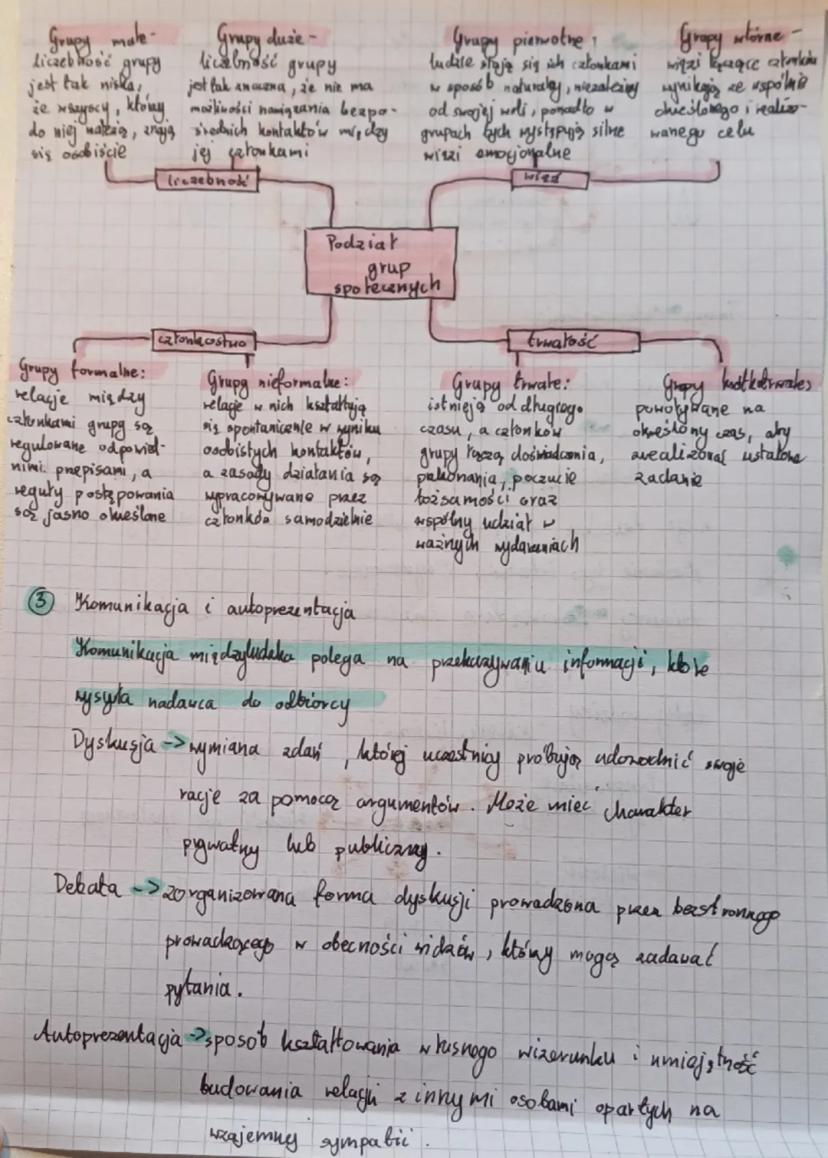 Grupy małe -
liczebność grupy
jest tak niska,
że wszyscy, którzy
do niej należą, znają
się osobiście
Grupy duże -
liczebność grupy
jest tak znaczna, że nie ma
możliwości nawiązania bezpo-
średnich kontaktów między
jej członkami
liczebność
Grupy pierwotne:
ludzie stają się ich członkami
w sposób naturalny, niezależny
od swojej woli, ponadto w
grupach tych występują silne
więzi emocjonalne
Grupy wtórne -
więzi łączące członków
wynikają ze wspólnie
określonego i realizo-
wanego celu
więź
Podział
grup
społecznych
członkostwo
Grupy formalne:
relacje między
członkami grupy są
regulowane odpowied-
nimi przepisami, a
reguły postępowania
są jasno określone
Grupy nieformalne:
relacje w nich kształtują
się spontanicznie w wyniku
osobistych kontaktów,
a zasady działania są
wypracowywane przez
członków samodzielnie
trwałość
Grupy trwałe:
istnieją od długiego
czasu, a członków
grupy łączą doświadczenia,
przekonania, poczucie
tożsamości oraz
wspólny udział w
ważnych wydarzeniach
Grupy krótkotrwałe:
powoływane na
określony czas, aby
zrealizować ustalone
zadanie
3 Komunikacja i autoprezentacja
Komunikacja międzyludzka polega na przekazywaniu informacji, które
wysyła nadawca do odbiorcy
Dyskusja -> wymiana zdań, której uczestnicy próbują udowodnić swoje
racje za pomocą argumentów. Może mieć charakter
prywatny lub publiczny.
Debata -> zorganizowana forma dyskusji prowadzona przez bezstronnego
prowadzącego w obecności widzów, którzy mogą zadawać
pytania.
Autoprezentacja -> sposób kształtowania własnego wizerunku i umiejętność
budowania relacji z innymi osobami opartych na
wzajemnej sympatii.